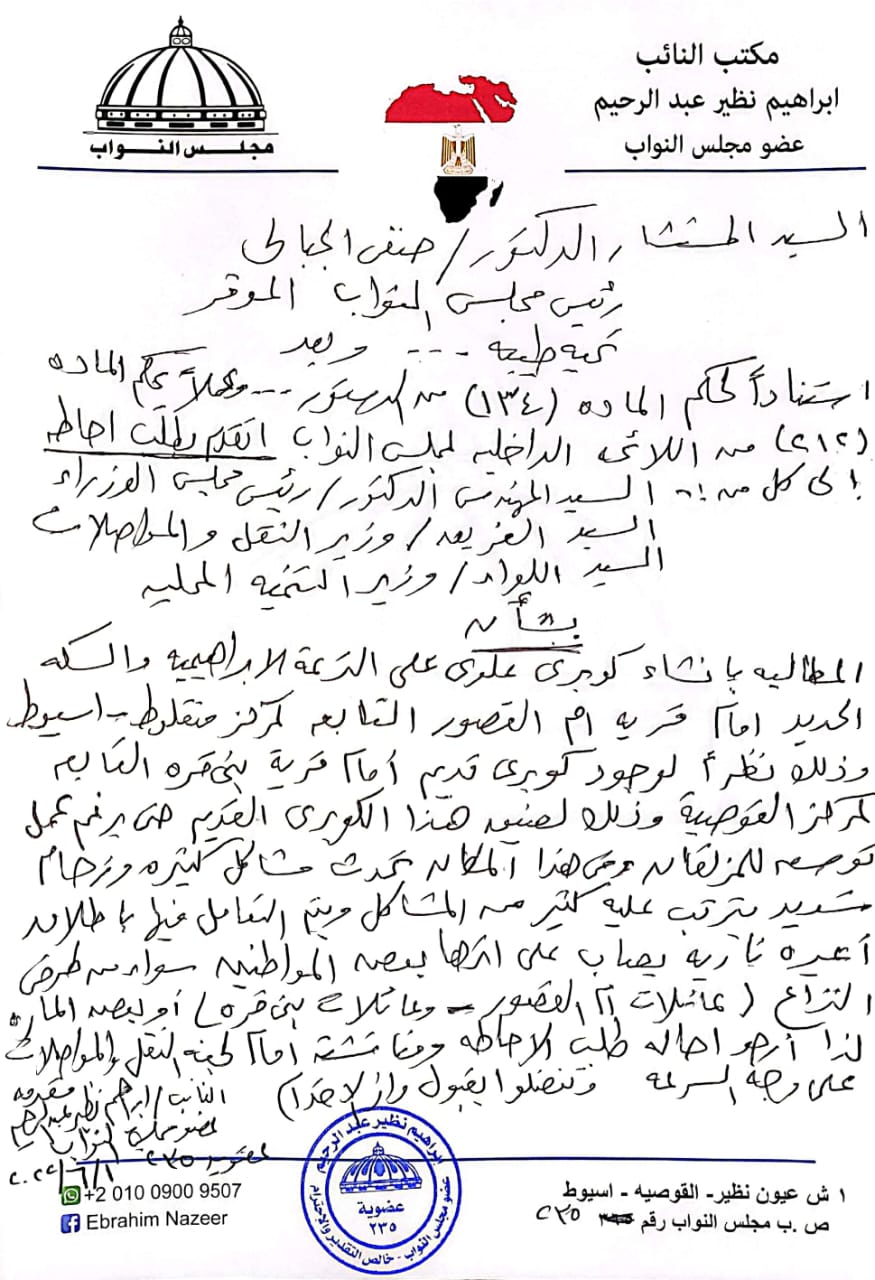 مكتب النائب
ابراهيم نظير عبد الرحيم
عضو مجلس النواب
مجلس النواب
السيد المستشار الدكتور / حنفى الجبالى
رئيس مجلس النواب الموقر
تحيه طيبه .... وبعد
استناداً لحكم الماده (١٣٤) من الدستور ... وعملاً بحكم الماده
(٢١٢) من اللائحه الداخليه لمجلس النواب اتقدم بطلب احاطه
الى كل من :- السيد المهندس الدكتور / رئيس مجلس الوزراء
السيد الفريق / وزير النقل والمواصلات
السيد اللواء / وزير التنميه المحليه
بشأن
المطالبه بإنشاء كوبرى علوى على الترعة الابراهيميه والسكه
الحديد امام قريه ام القصور التابعه لمركز منفلوط - اسيوط
وذلك نظراً لوجود كوبرى قديم أمام قرية بنى قره التابعه
لمركز القوصية وذلك لضيق هذا الكوبرى القديم حتى برغم عمل
توسعه للمزلقان وفى هذا المكان تحدث مشاكل كثيره وزحام
شديد يترتب عليه كثير من المشاكل ويتم التعامل فيها باطلاق
أعيره ناريه يصاب على اثرها بعض المواطنين سواء من طرفى
النزاع (عائلات ام القصور - وعائلات بنى قره) أو بعض الماره
لذا أرجو احاله طلب الاحاطه ومناقشته امام لجنه النقل والمواصلات
على وجه السرعه وتفضلوا بقبول وافر الاحترام
مقدمه
النائب / ابراهيم نظير عبد الرحيم
عضو مجلس النواب
عضويه ٢٣٥
ابراهيم نظير عبد الرحيم
عضوية
٢٣٥
عضو مجلس النواب - خالص التقدير والاحترام
+2 010 0900 9507
Ebrahim Nazeer
١ ش عيون نظير- القوصيه - اسيوط
ص .ب مجلس النواب رقم ٢٣٥